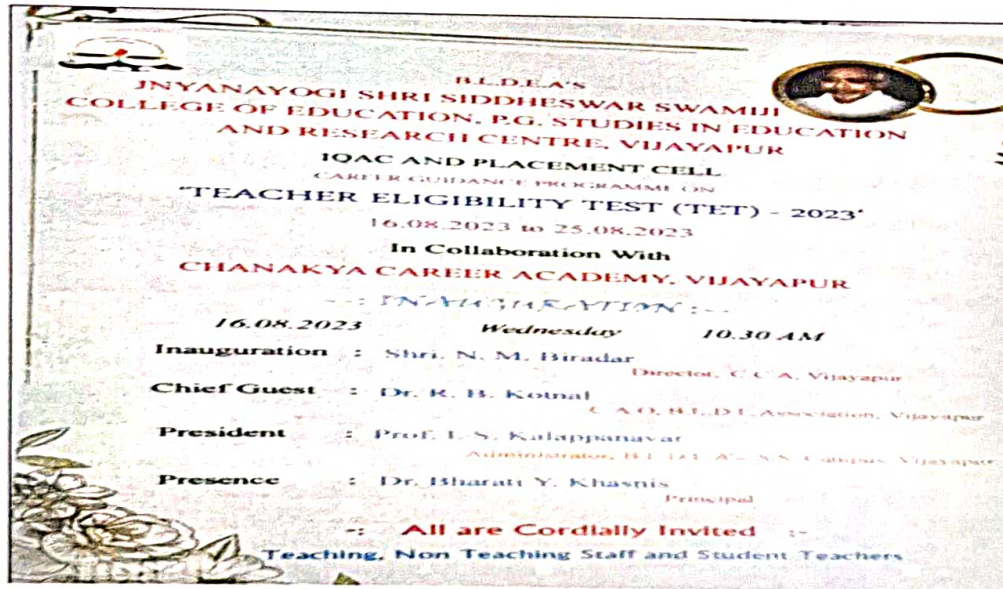 B.L.D.E.A'S
JNYANAYOGI SHRI SIDDHESWAR SWAMIJI
COLLEGE OF EDUCATION, P.G. STUDIES IN EDUCATION
AND RESEARCH CENTRE, VIJAYAPUR
IQAC AND PLACEMENT CELL
CAREER GUIDANCE PROGRAMME ON
'TEACHER ELIGIBILITY TEST (TET) - 2023'
16.08.2023 to 25.08.2023
In Collaboration With
CHANAKYA CAREER ACADEMY, VIJAYAPUR
--: INAUGURATION :--
16.08.2023 Wednesday 10.30 AM
Inauguration : Shri. N. M. Biradar
Director, C.C.A. Vijayapur
Chief Guest : Dr. R. B. Kotnal
C.A.O, B.L.D.E. Association, Vijayapur
President : Prof. I. S. Kalappanavar
Administrator, B.L.D.E.A's S.S. Campus, Vijayapur
Presence : Dr. Bharati Y. Khasnis
Principal
-: All are Cordially Invited :-
Teaching, Non Teaching Staff and Student Teachers